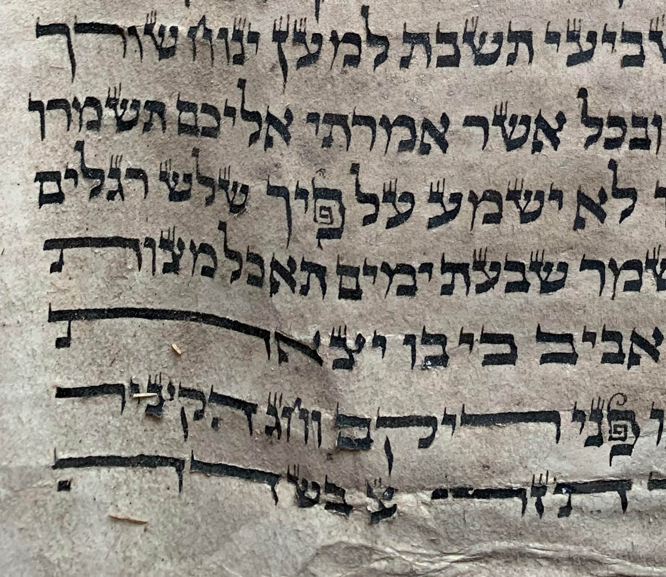 שביעי תשבת למען ינוח שורך
ובכל אשר אמרתי אליכם תשמרו
לא ישמע על פיך שלש רגלים
שמר שבעת ימים תאכל מצות
אביב כי בו יצאת
ו פני ריקם וחג הקציר
תזרע בשדה